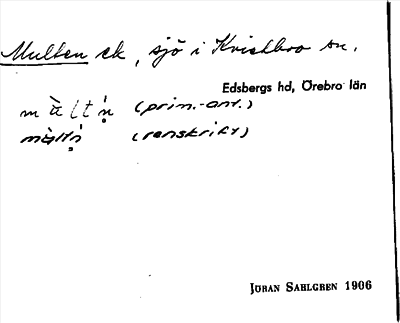 Multen ek, sjö i Kvistbro sn.
Edsbergs hd, Örebro län
(prim.-ant.)
(renskrift)
JÖRAN SAHLGREN 1906